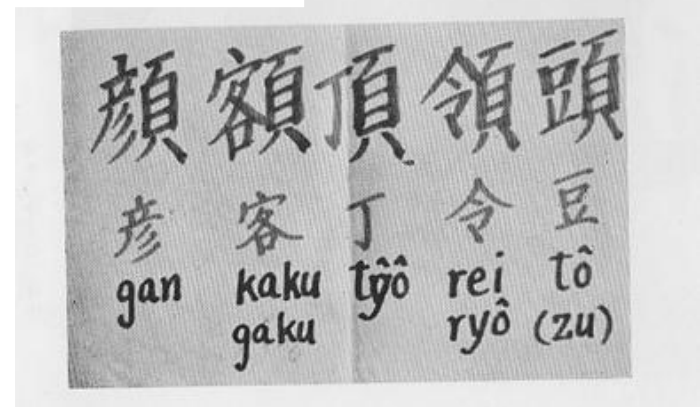 顔 額 頂 領 頭
彦 客 丁 令 豆
gan kaku tyô rei tô
gaku ryô (zu)